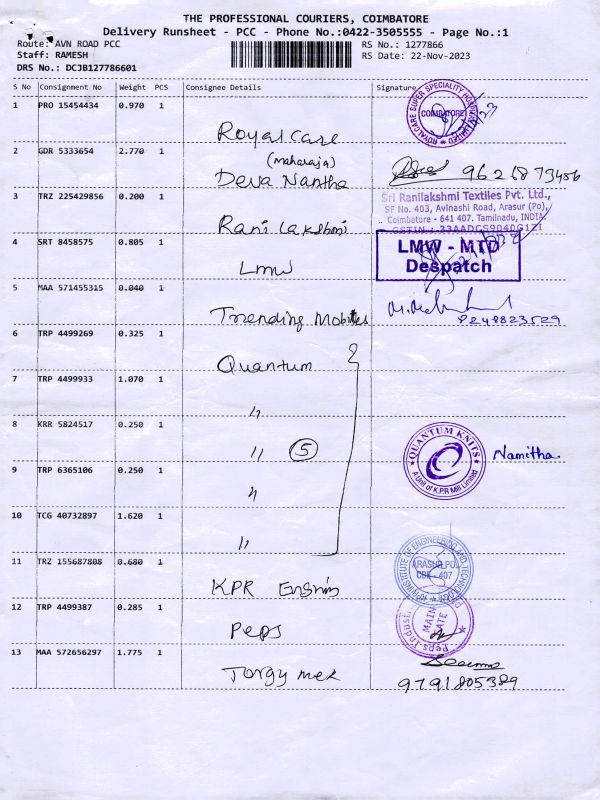 THE PROFESSIONAL COURIERS, COIMBATORE
Delivery Runsheet - PCC - Phone No.:0422-3505555 - Page No.:1
Route: AVN ROAD PCC
Staff: RAMESH
DRS No.: DCJB127786601
RS No.: 1277866
RS Date: 22-Nov-2023
S No Consignment No Weight PCS Consignee Details Signature
1 PRO 15454434 0.970 1
Royal Care
ROYALCARE SUPER SPECIALITY HOSPITAL LIMITED
COIMBATORE
2 GDR 5333654 2.770 1
(maharaja)
Deva Nantha
9626879486
3 TRZ 225429856 0.200 1
Rani Lakshmi
Sri Ranilakshmi Textiles Pvt. Ltd.,
SF No. 403, Avinashi Road, Arasur (Po),
Coimbatore - 641 407. Tamilnadu, INDIA
GSTIN : 33AADCS9040G1ZI
4 SRT 8458575 0.805 1
Lmw
LMW - MTD
Despatch
5 MAA 571455315 0.040 1
Trending Mobiles
8248823529
6 TRP 4499269 0.325 1
Quantum
7 TRP 4499933 1.070 1
"
8 KRR 5824517 0.250 1
" 5
QUANTUM KNITS
A Unit of K.P.R Mill Limited
Namitha
9 TRP 6365106 0.250 1
"
10 TCG 40732897 1.620 1
"
11 TRZ 155687808 0.680 1
KPR
INSTITUTE OF ENGINEERING AND TECHNOLOGY
ARASUR PO,
CBE - 407
12 TRP 4499387 0.285 1
Peps
Peps Indust
MAIN
GATE
13 MAA 572656297 1.775 1
9791805389